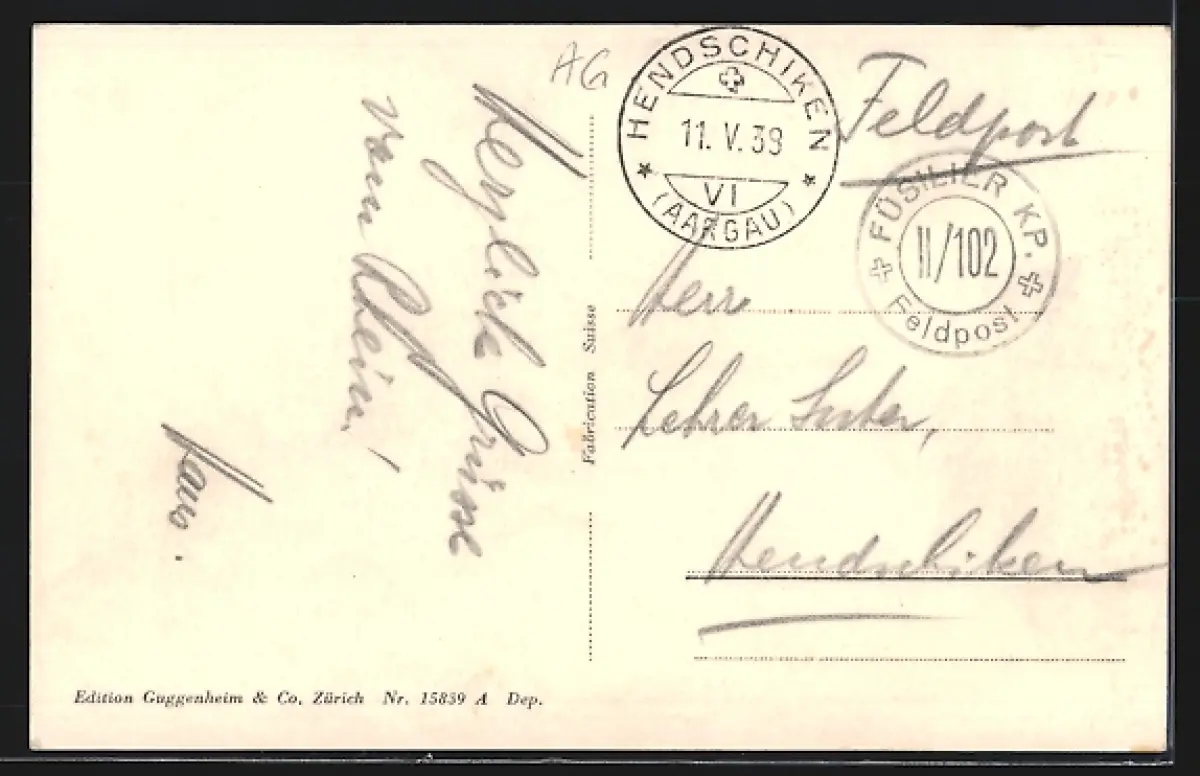 AG
HENDSCHIKEN
11. V. 39
VI
(AARGAU)
Feldpost
FÜSILIER KP.
II/102
Feldpost
Herzliche Grüsse
vom Rhein!
Hans.
Herr
Lehrer Suter,
Hendschiken
Fabrication Suisse
Edition Guggenheim & Co. Zürich Nr. 15839 A Dep.